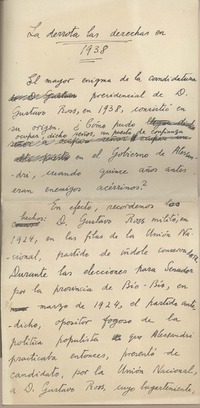 La derrota las derechas en
1938
El mayor enigma de la candidatura
presidencial de D.
Gustavo Ross, en 1938, consistió en
su origen. ¿Cómo pudo
ocupar, dicho señor, un puesto de confianza
en el Gobierno de Alessan-
dri, cuando quince años antes
eran enemigos acérrimos?
En efecto, recordemos los
hechos: D. Gustavo Ross militó, en
1924, en las filas de la Unión Na-
cional, partido de índole conservadora.
Durante las elecciones para Senador
por la provincia de Bío-Bío, en
marzo de 1924, el partido ante-
dicho, opositor fogoso de la
política populista que Alessandri
practicaba entonces, presentó de
candidato, por la Unión Nacional,
a D. Gustavo Ross, cuyo lugarteniente,